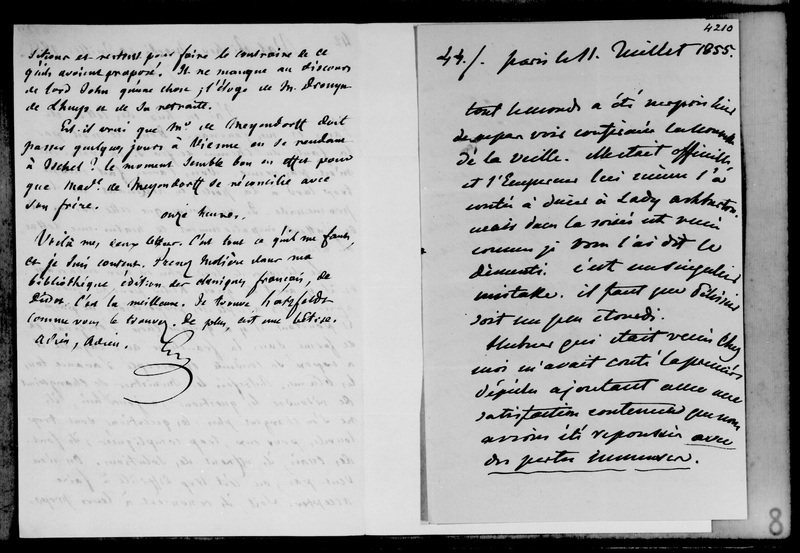 et restent pour faire le contraire de ce
qu'ils avoient proposé. Il ne manque au discours
de lord John qu'une chose ; l'éloge de M. Drouyn
de Lhuys et de sa retraite.
Est-il vrai que Mr de Meyendorff doit
passer quelques jours à Vienne en se rendant
à Ischel ? Le moment semble bon en effet pour
que Made de Meyendorff se réconcilie avec
son frère.
onze heures.
Voilà mes deux lettres. C'est tout ce qu'il me faut,
et je suis content. Prenez Molière dans ma
bibliothèque, édition des classiques français, de
Didot. C'est la meilleure. Je trouve Hatzfeldt
comme vous le trouvez. De plus, c'est une bêtise.
Adieu, Adieu.
4210
44/. Paris le 11. Juillet 1855.
tout le monde a été
la nouvelle
de la veille. Elle était officielle
et l'Empereur lui même l'a
contée à dîner à Lady Ashburton.
mais dans la soirée est venu
comme je vous l'ai dit le
démenti. c'est un singulier
mistake. il faut que Pélissier
soit un peu étourdi.
Hubner qui était venu chez
moi m'avait conté la première
dépêche ajoutant avec une
satisfaction contenue que nous
avions été repoussés avec
des pertes immenses.
8